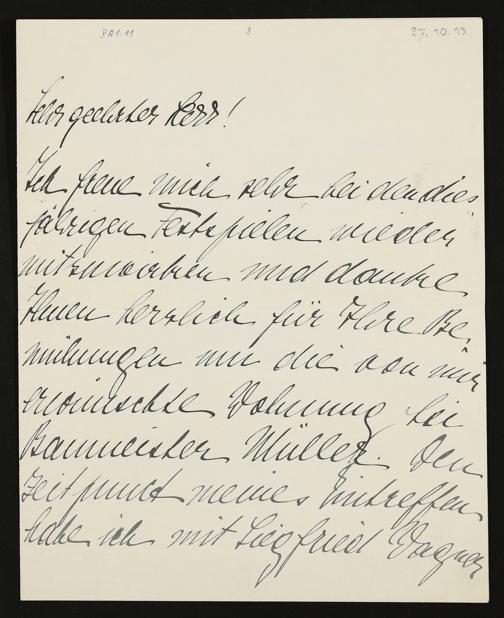 BA1.11 3 27.10.13
Sehr geehrter Herr!
Ich freue mich sehr, bei den dies
jährigen Festspielen wieder
mitzuwirken und danke
Ihnen herzlich für Ihre Be,
mühungen um die von mir
erwünschte Wohnung bei
Baumeister Müller. Den
Zeitpunct meines Eintreffens
habe ich mit Siegfried Wagner